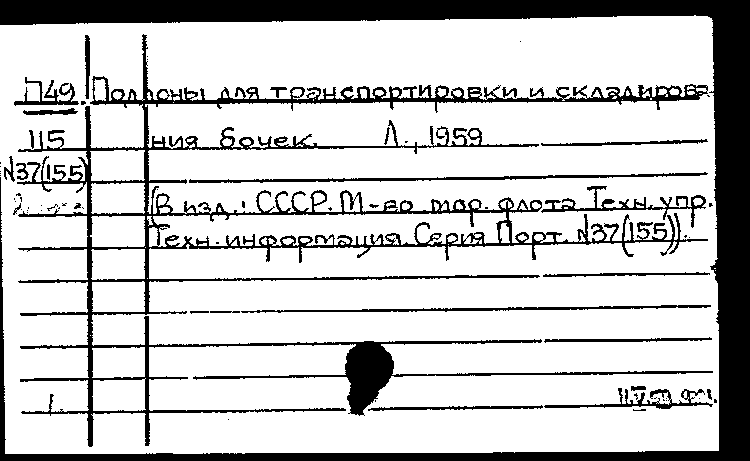 П49 Поддоны для транспортировки и складирова-
115 ния бочек. Л., 1959
N37(155)
(В изд.: СССР. М-во мор. флота Техн. упр.
Техн. информация. Серия Порт. N37(155)).
1.